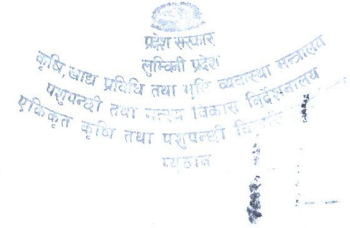 प्रदेश सरकार
लुम्बिनी प्रदेश
कृषि, खाद्य प्रविधि तथा भूमि व्यवस्था मन्त्रालय
पशुपन्छी तथा मत्स्य विकास निर्देशनालय
एकिकृत कृषि तथा पशुपन्छी
प्यूठान